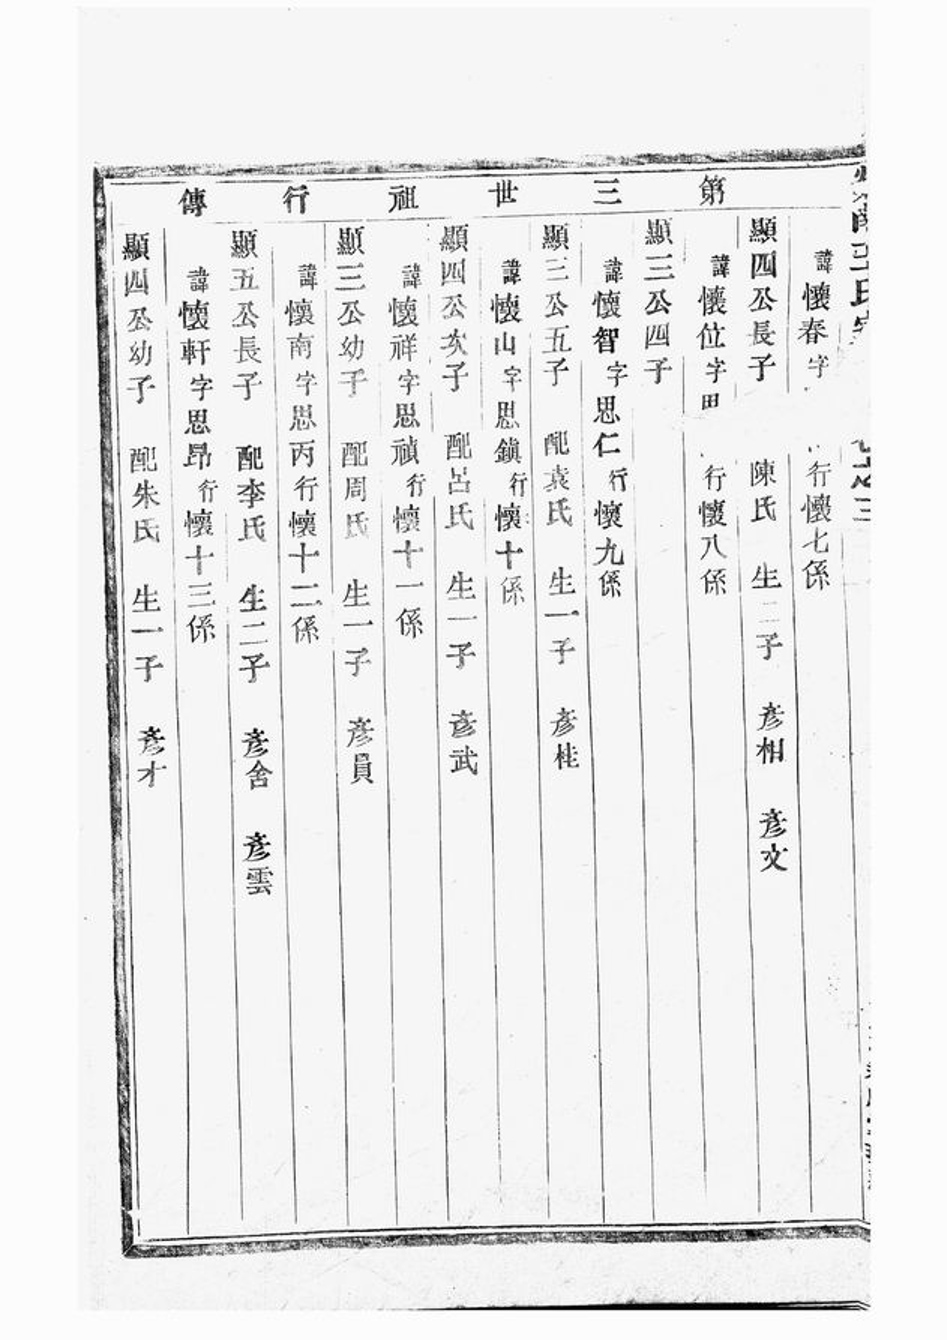 第三世祖行傳
諱懷春字 行懷七係
顯四公長子 陳氏 生二子 彥相 彥文
諱懷位字 行懷八係
顯三公四子
諱懷智字思仁行懷九係
顯三公五子 配袁氏 生一子 彥桂
諱懷山字思鎮行懷十係
顯四公次子 配呂氏 生一子 彥武
諱懷祥字思禎行懷十一係
顯三公幼子 配周氏 生一子 彥員
諱懷南字思丙行懷十二係
顯五公長子 配李氏 生二子 彥舍 彥雲
諱懷軒字思昂行懷十三係
顯四公幼子 配朱氏 生一子 彥才